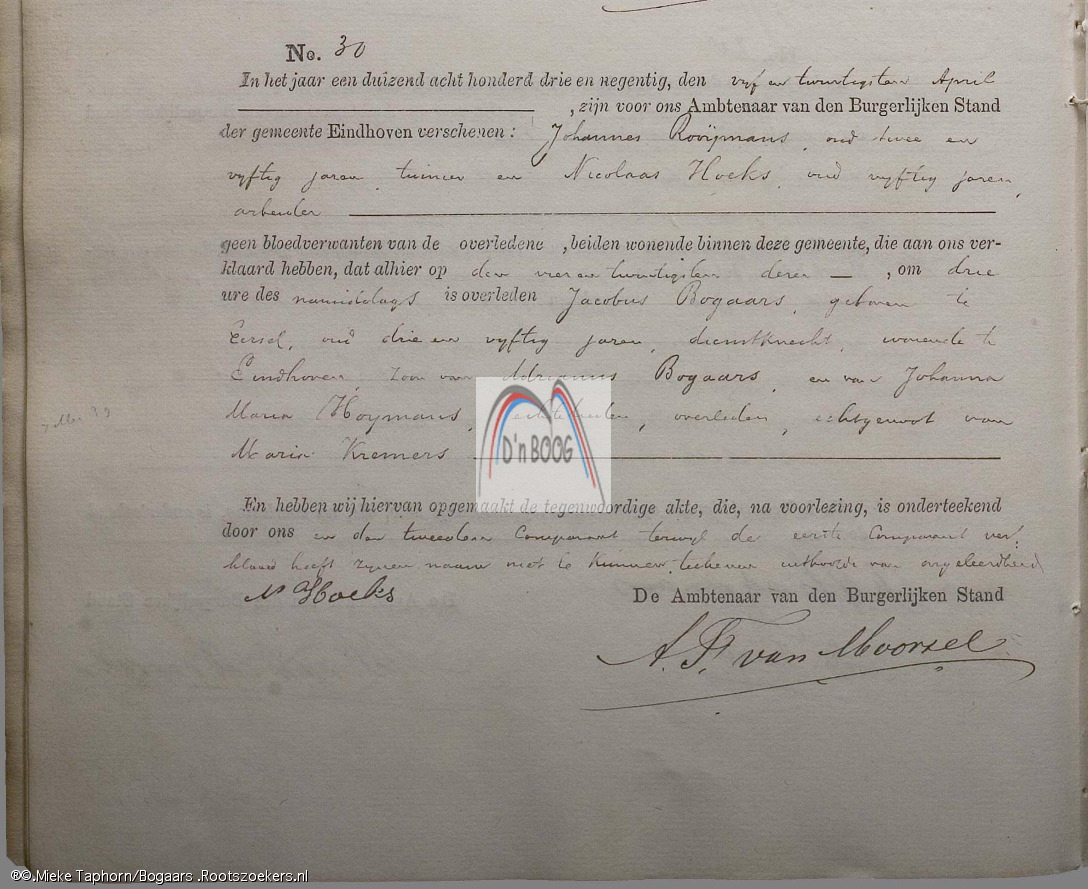 No. 30
In het jaar een duizend acht honderd drie en negentig, den vijf en twintigsten April
, zijn voor ons Ambtenaar van den Burgerlijken Stand
der gemeente Eindhoven verschenen: Johannes Rooijmans, oud twee en
vijftig jaren, tuinier en Nicolaas Hoeks, oud vijftig jaren,
arbeider
geen bloedverwanten van de overledene, beiden wonende binnen deze gemeente, die aan ons ver-
klaard hebben, dat alhier op den vier en twintigsten dezer —, om drie
ure des namiddags is overleden Jacobus Bogaars, geboren te
Eersel, oud drie en vijftig jaren, dienstknecht, wonende te
Eindhoven, zoon van Adrianus Bogaars, en van Johanna
Maria Hoymans, echtelieden, overleden, echtgenoot van
Maria Kremers
D'n BOOG
En hebben wij hiervan opgemaakt de tegenwoordige akte, die, na voorlezing, is onderteekend
door ons en den tweeden Comparant terwijl de eerste Comparant ver-
klaard heeft zijnen naam niet te kunnen teekenen uithoofde van ongeleerdheid
N Hoeks
De Ambtenaar van den Burgerlijken Stand
A. F. van Moorsel
®©.Mieke Taphorn/Bogaars .Rootszoekers.nl